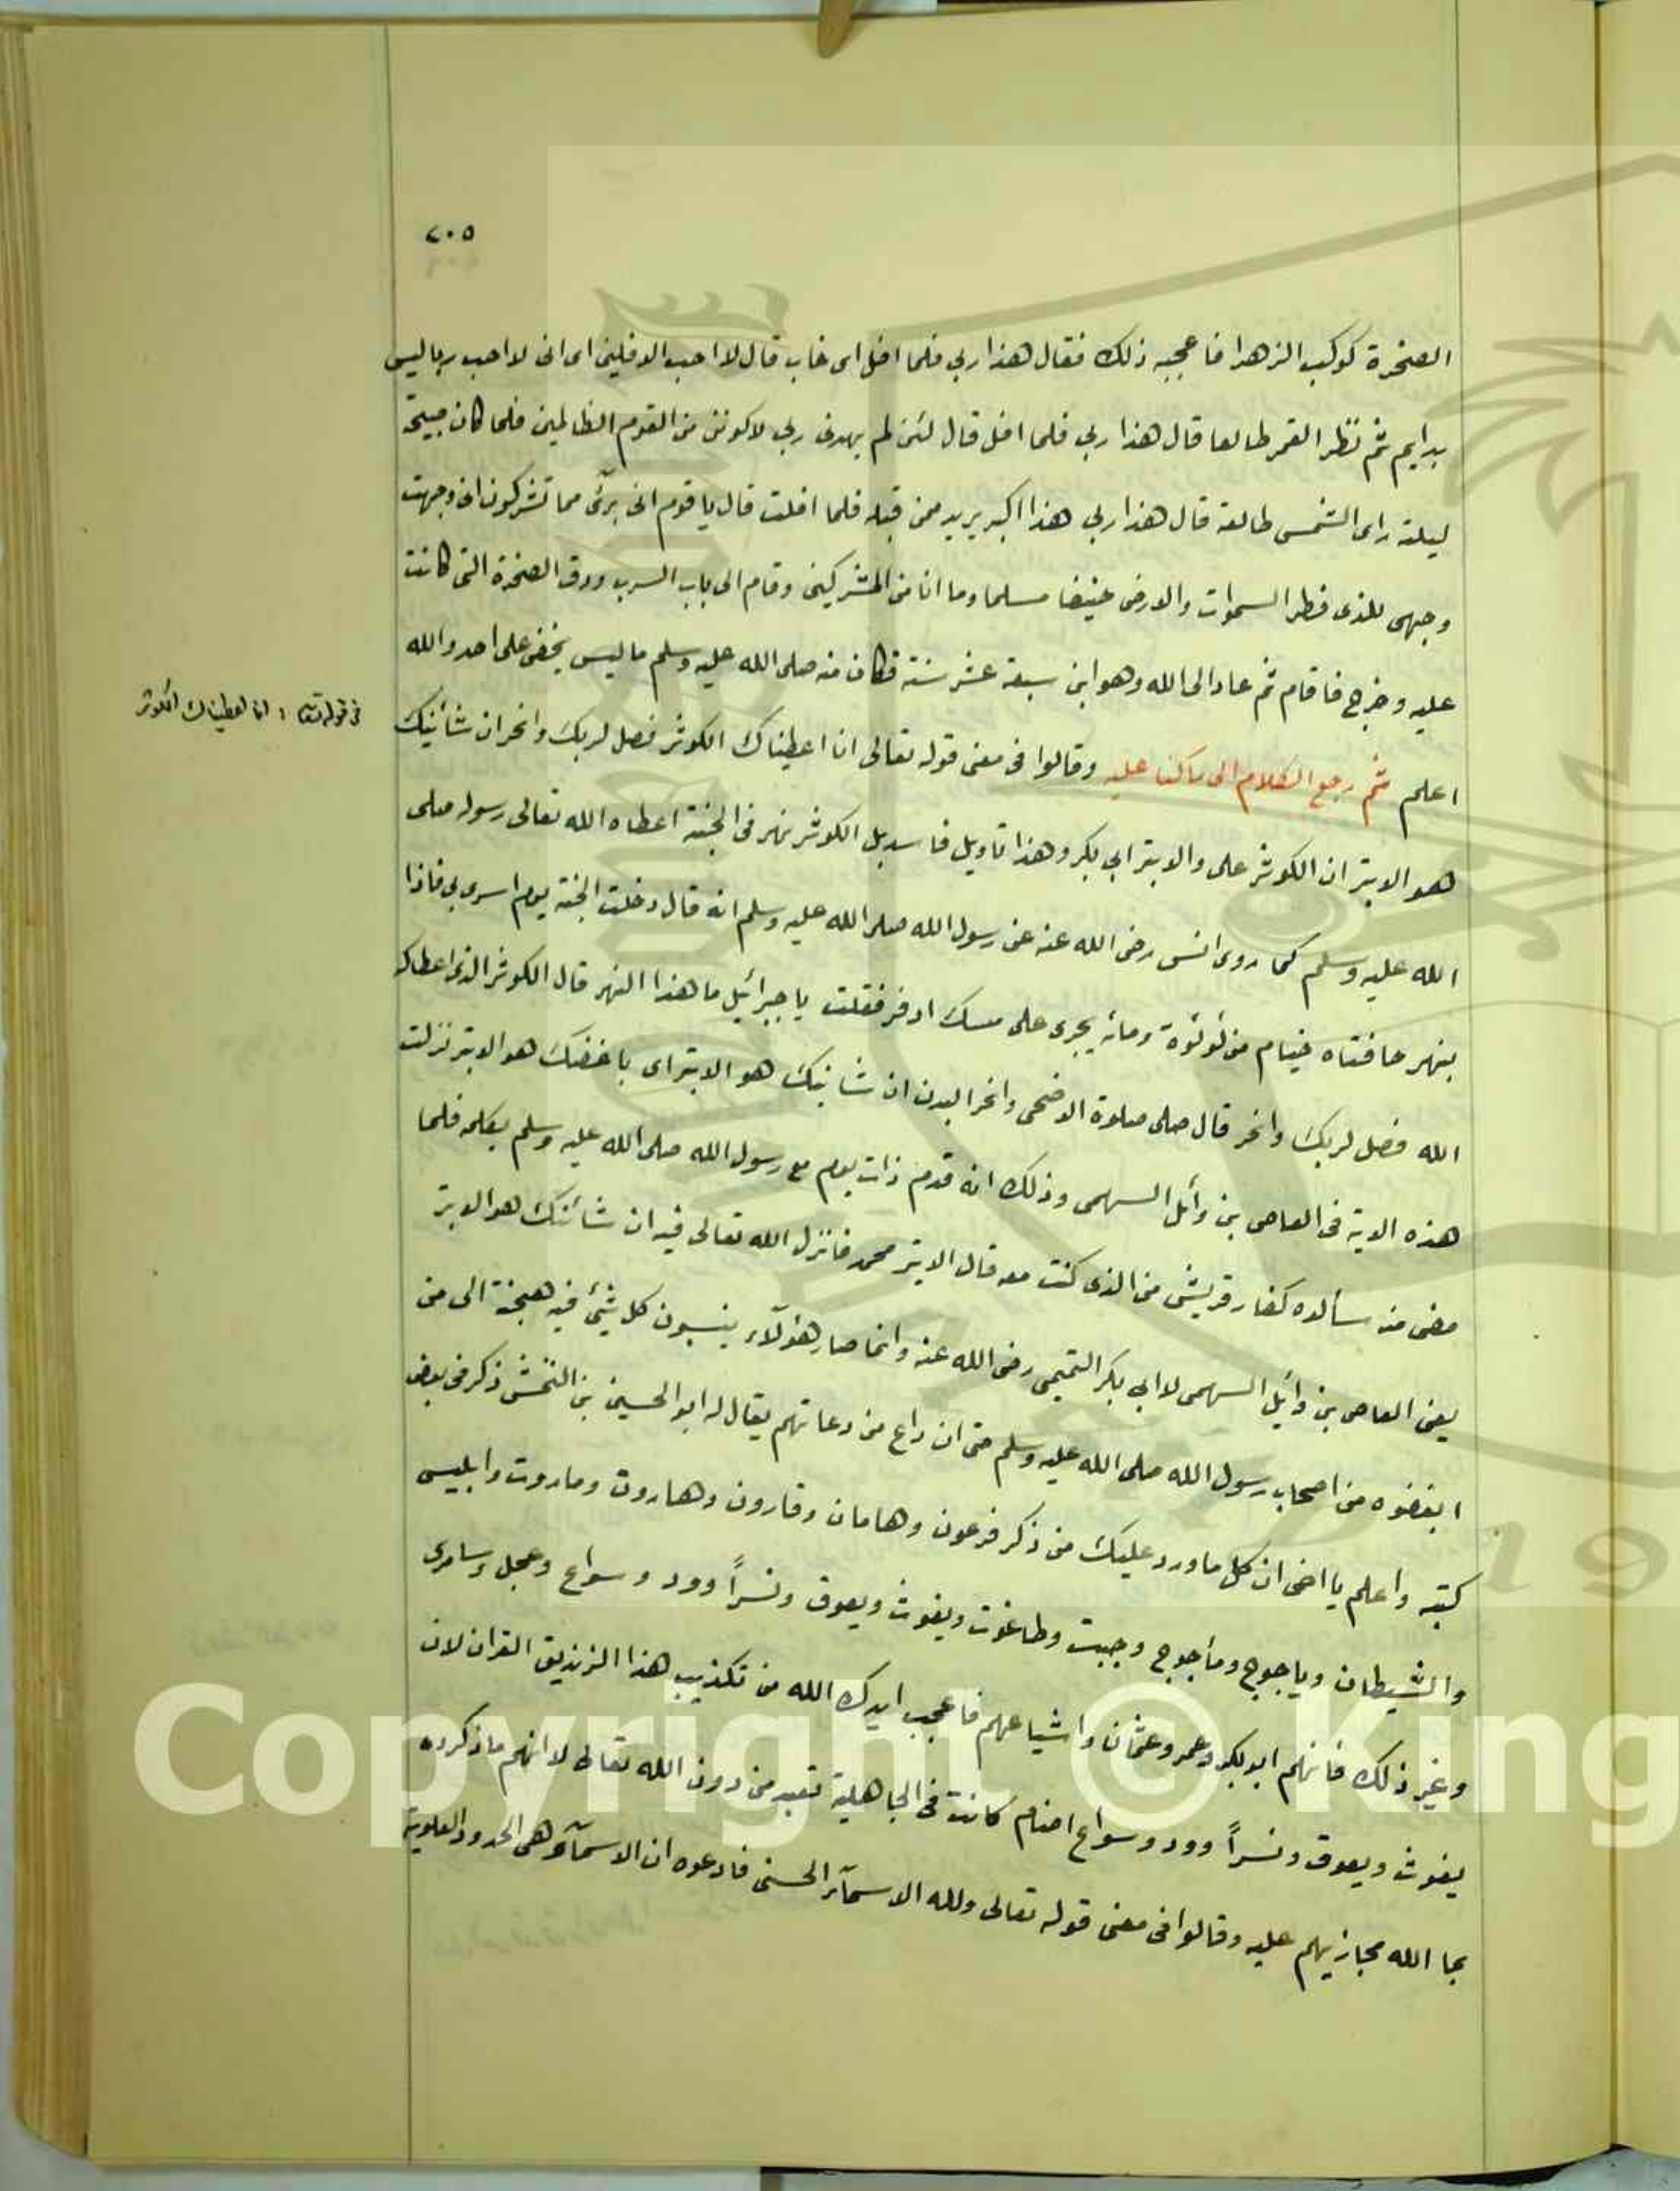 ٢٠٥
الصخرة كوكب الزهرا فاعجبه ذلك فقال هذا ربي فلما افل اى غاب قال لا احب الافلين اى انى لا احب ربا ليس
بدايم ثم نظر القمر طالعا قال هذا ربي فلما افل قال لئن لم يهدنى ربي لاكونن من القوم الظالمين فلما كان صبيحة
ليلته راى الشمس طالعة قال هذا ربي هذا اكبر يريد ممن قبله فلما افلت قال يا قوم انى برئ مما تشركون انى وجهت
وجهى للذى فطر السموات والارض حنيفا مسلما وما انا من المشركين وقام الى باب السرب ودق الصخرة التى كانت
عليه وخرج فاقام ثم عاد الى الله وهو ابن سبعة عشر سنة فكان منه صلى الله عليه وسلم ما ليس يخفى على احد والله
اعلم ثم رجع الكلام الى ما كنا عليه وقالوا فى معنى قوله تعالى انا اعطيناك الكوثر فصل لربك وانحر ان شأنيك
فى قوله تعا : انا اعطيناك الكوثر
هو الابتر ان الكوثر على والابتر ابي بكر وهذا تاويل فاسد بل الكوثر نهر فى الجنة اعطاه الله تعالى رسوله صلى
الله عليه وسلم كما روى انس رضى الله عنه عن رسول الله صلى الله عليه وسلم انه قال دخلت الجنة يوم اسرى بي فاذا
بنهر حافتاه خيام من لؤلؤة ومائه يجرى على مسك ادفر فقلت يا جبرائيل ما هذا النهر قال الكوثر الذى اعطاك
الله فصل لربك وانحر قال صلى صلوة الاضحى وانحر البدن ان شانيك هو الابتر اى باغضك هو الابتر نزلت
هذه الاية فى العاصى بن وائل السهمى وذلك انه قدم ذات يوم مع رسول الله صلى الله عليه وسلم يكلمه فلما
مضى منه سألوه كفار قريش من الذى كنت معه قال الابتر محمد فانزل الله تعالى فيه ان شأنئك هو الابتر
يعنى العاصى بن وائيل السهمى لا ابي بكر التميمى رضى الله عنه وانما صار هؤلآء ينسبون كل شئ فيه هجنة الى من
ابغضوه من اصحاب رسول الله صلى الله عليه وسلم حتى ان داع من دعاتهم يقال له ابو الحسين بن ذكر فى بعض
كتبه واعلم يا اخى ان كل ما ورد عليك من ذكر فرعون وهامان وقارون وهاروت وماروت وابليس
والشيطان وياجوج ومأجوج وجبت وطاغوت ويغوث ويعوق ونسراً وود وسواع وعجل وسامرى
وغير ذلك فانهم ابو بكر وعمر وعثمان واشياعهم فاعجب ايدك الله من تكذيب هذا الزنديق القران لان
يغوث ويعوق ونسراً وود وسواع اصنام كانت فى الجاهلية تعبد من دون الله تعالى لا انهم ما ذكره
بما الله مجازيهم عليه وقالوا فى معنى قوله تعالى ولله الاسمآء الحسنى فادعوه ان الاسمآء هى الحدود العلوية
Copyright © King
19